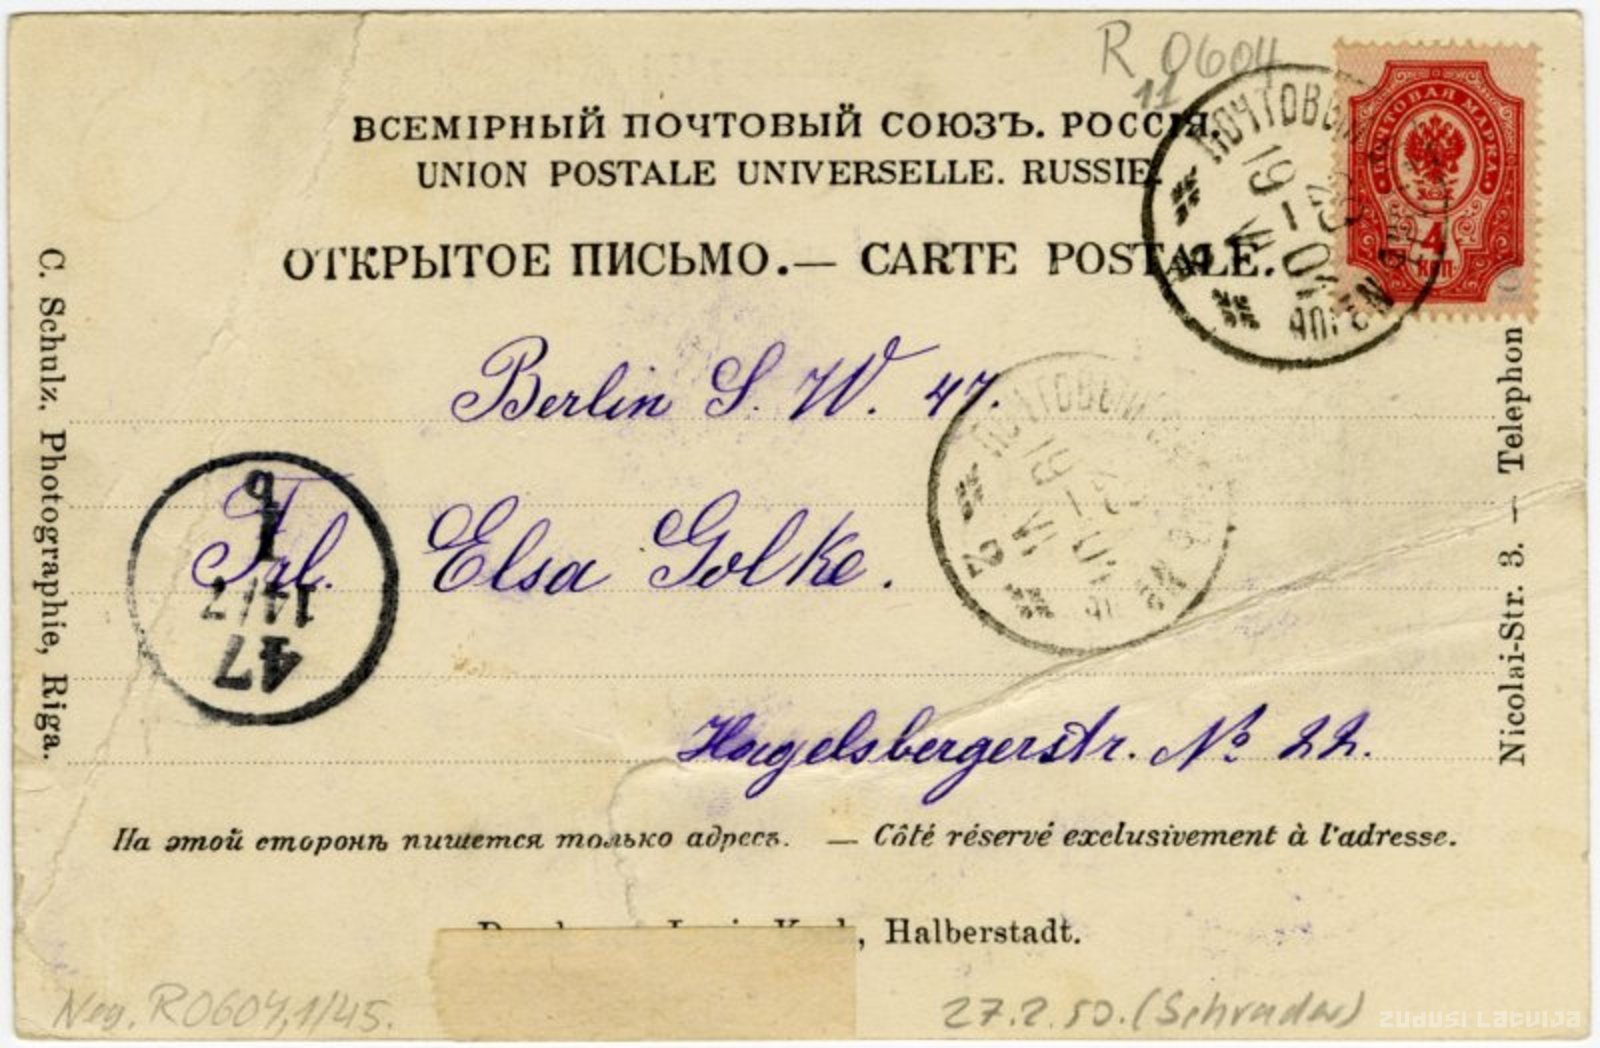 R 0604
11
ВСЕМІРНЫЙ ПОЧТОВЫЙ СОЮЗЪ. РОССІЯ.
UNION POSTALE UNIVERSELLE. RUSSIE.
ОТКРЫТОЕ ПИСЬМО. — CARTE POSTALE.
ПОЧТОВАЯ МАРКА
4
КОП.
ПОЧТОВЫЙ
19
ПОЧТОВЫЙ
19
C. Schulz, Photographie, Riga.
Nicolai-Str. 3. — Telephon
Berlin S. W. 47.
Frl. Elsa Golke.
Hagelsbergerstr. No 22.
47
14/7
На этой сторонѣ пишется только адресъ. — Côté réservé exclusivement à l'adresse.
, Halberstadt.
Neg. R0604,1/45.
27.2.50. (Schrader)
ZUDUSI LATVIJA